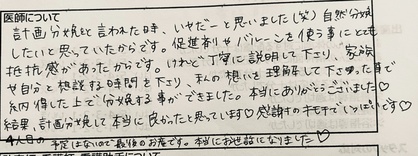 医師について
計画分娩と言われた時、いやだーと思いました(笑)自然分娩
したいと思っていたからです。促進剤やバルーンを使う事にとても
抵抗感があったからです。けれど丁寧に説明して下さり、家族
や自分と相談する時間を下さり、私の想いを理解して下さった事で
納得した上で分娩する事ができました。本当にありがとうございました♡
結果、計画分娩して本当に良かったと思っています♡感謝の気持ちでいっぱいです♡
4人目の予定はないので最後のお産です。本当にお世話になりました♡